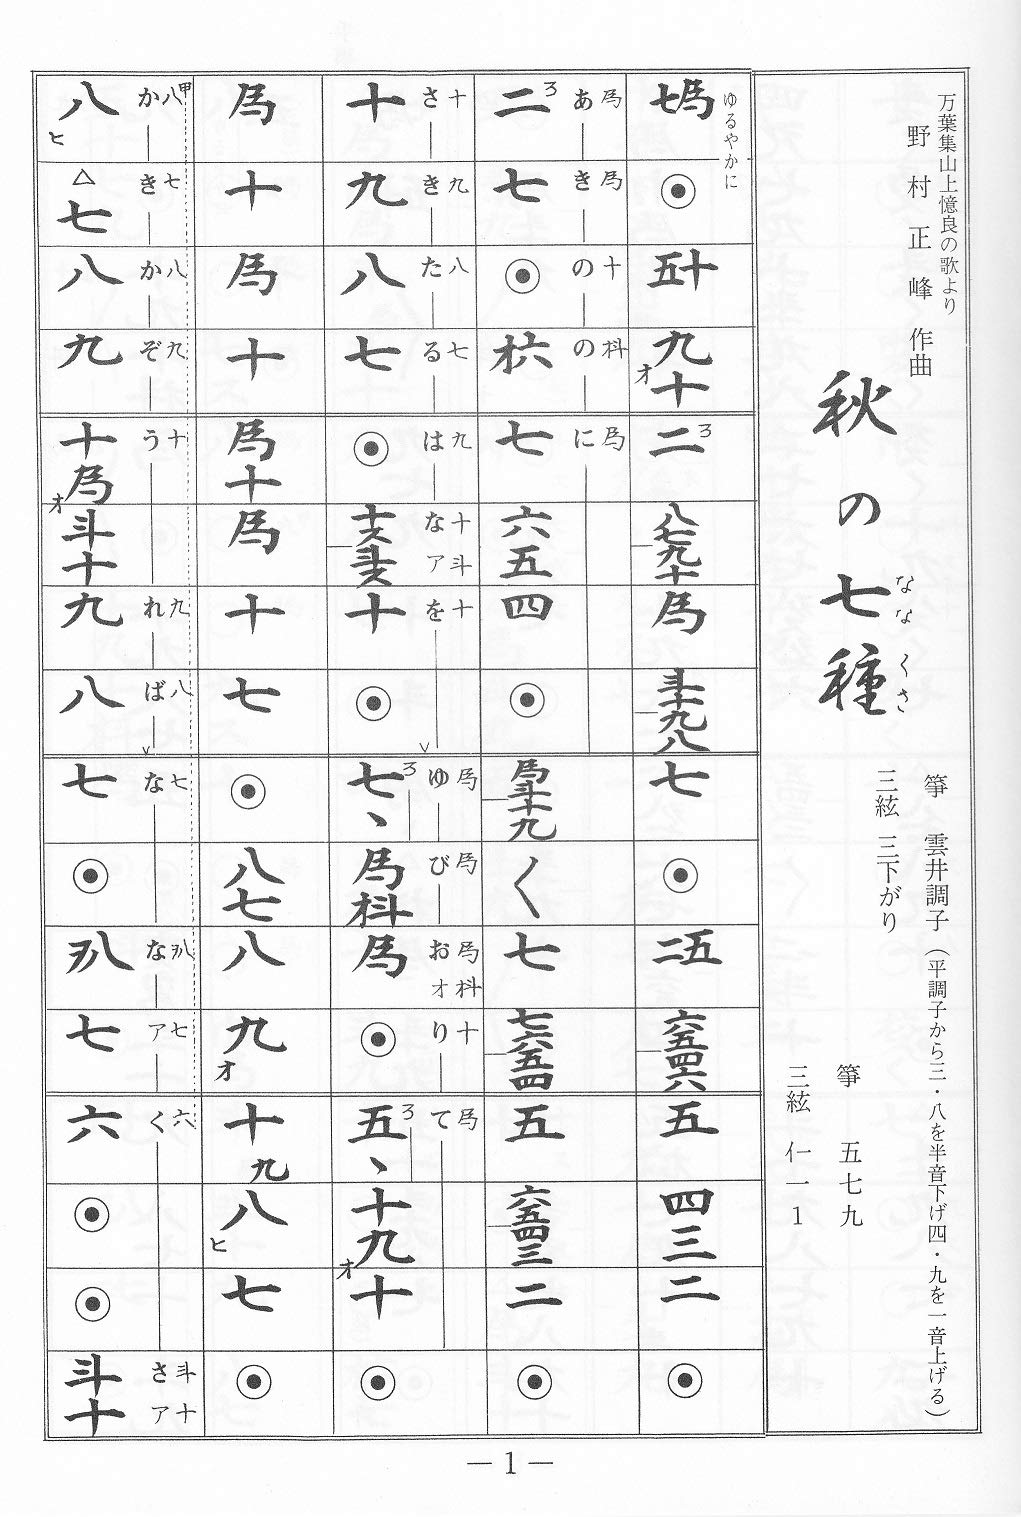 万葉集山上憶良の歌より
野村正峰 作曲
秋の七種
ななくさ
箏 雲井調子(平調子から三・八を半音下げ四・九を一音上げる)
三絃 三下がり
箏 五七九
三絃 仁一1
ゆるやかに
七為 ⦿ 五十 九オ十 二 八七九十 為 斗十九八 七 ⦿ 二五 六五四六 五 四三 二 ⦿
為 為 十 為
あきののに
二 七 ⦿ 七 六五 四 ⦿ 為斗十九 く 七 七六五四 五 六五四三 二 ⦿
十 九 八 七 九 十 斗 十 為 為 為 十 為
さきたるはなアをゆびおオりて
十 九 八 七 ⦿ 十ス斗ス 十 ⦿ 七ヽ 為 為 ⦿ 五ヽ 十九オ 十 ⦿
為 十 為 十 為十 為 十 七 ⦿ 八七 八 九オ 十九 八ヒ 七 ⦿
甲 八 七 八 九 十 九 八 七 七 六 斗 十
かきかぞうればななアくさア
八ヒ △七 八 九 十為オ 斗十 九 八 七 ⦿ 七 六 ⦿ ⦿ 斗十
— 1 —